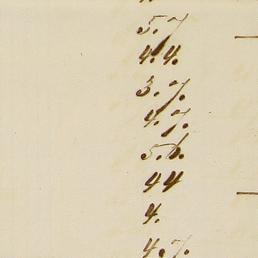 5.7
4.4.
3.7.
4.7.
5.6.
44
4.
4.7.